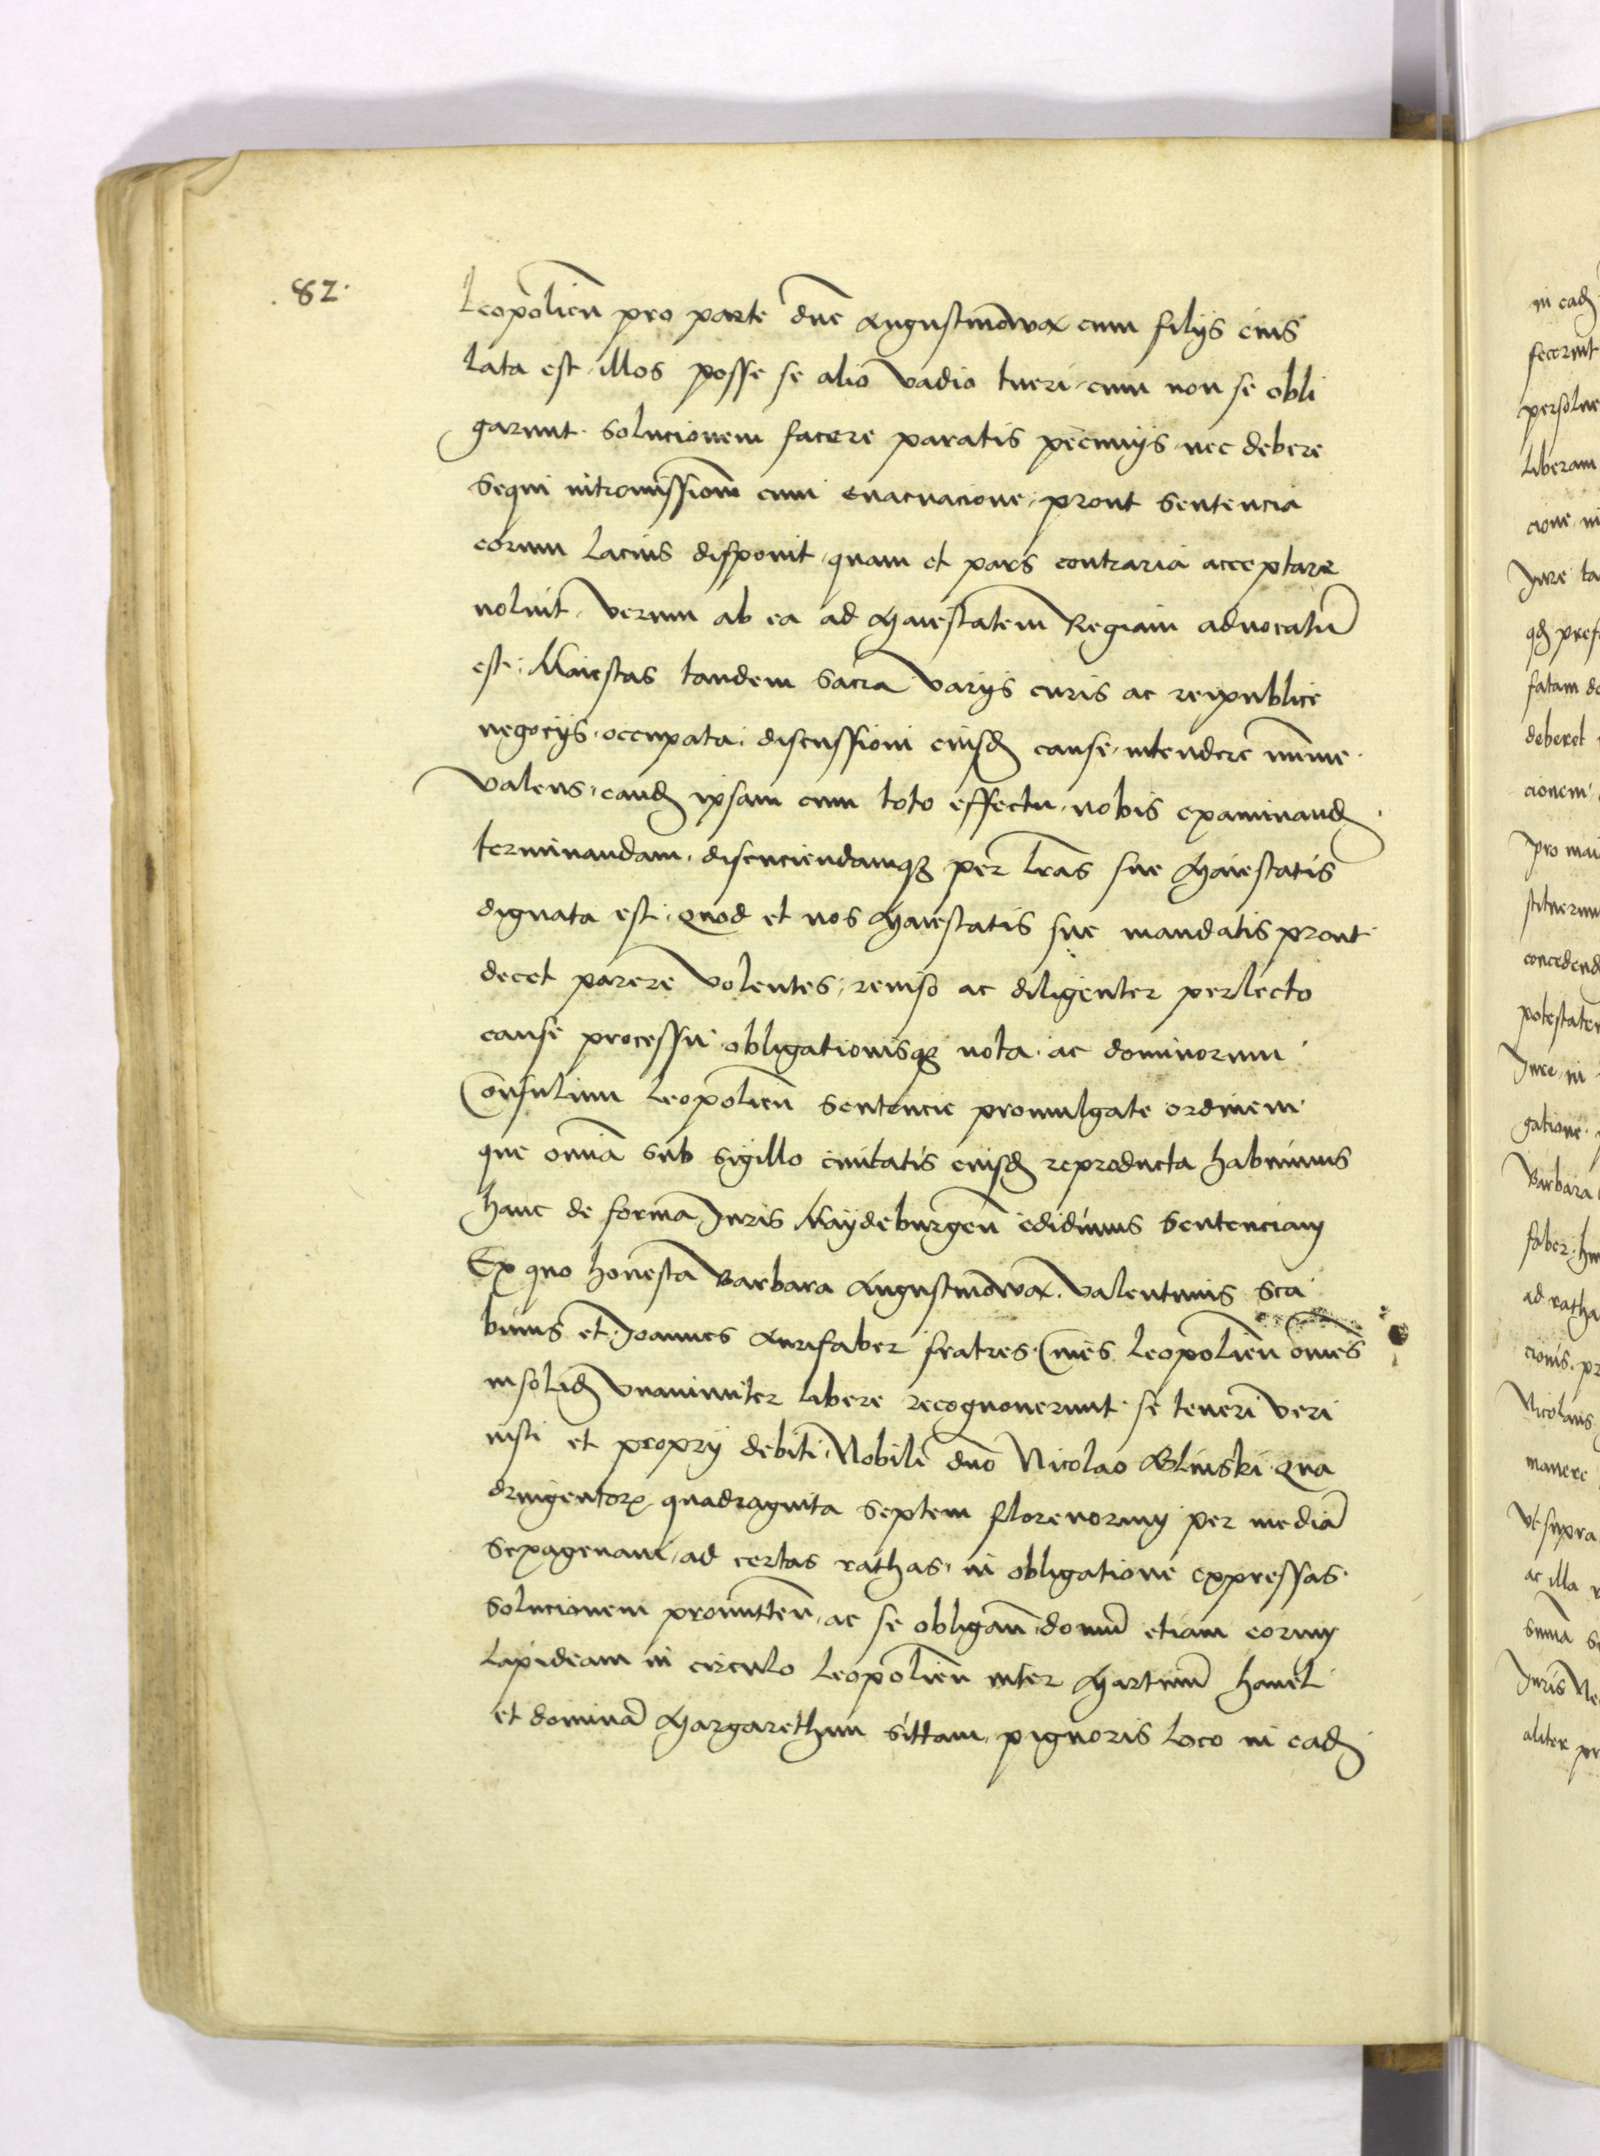 82.
Leopolien̄ pro parte dn̄e Augustinowa cum filijs eius
lata est, illos posse se alio vadio tueri, cum non se obli
garunt solucionem facere paratis pecunijs, nec debere
sequi intromissionem cum evacuacione, prout sentencia
eorum lacius disponit, quam et pars contraria acceptare
noluit, verum ab ea ad Maiestatem Regiam advocatū
est: Maiestas tandem Sacra varijs curis ac reipublice
negocijs occupata, discussioni eiusd cause intendere minime
valens, eand ipsam cum toto effectu nobis examinand
terminandam, discuciendamqꝫ per lr̄as sue Maiestatis
dignata est: Quod et nos Maiestatis sue mandatis prout
decet parere volentes, reviso ac diligenter perlecto
cause processu obligationisqꝫ nota, ac dominorum
Consulum Leopolien̄ sentencie promulgate ordinem
que om̄ia sub sigillo civitatis eiusd reproducta habuimus
hanc de forma Iuris Maydeburgen̄ edidimus sentenciam
Ex quo honesta Barbara Augustinowa, Valentinus Sca
binus et Joannes Aurifaber fratres, Cives Leopolien̄ om̄es
insolid vnanimiter libere recognoverunt se teneri veri
iusti et proprij debiti Nobili dn̄o Nicolao Glinski Qua
dringentorꝫ quadraginta septem florenorum per mediā
sexagenam, ad certas rathas in obligatione expressas
solucionem promitten̄, ac se obligan̄, domū etiam eorum
lapideam in circulo Leopolien̄ inter Martinū Havel
et dominā Margaretham sittam, pignoris loco in ead
in ead
fecerint
persolve
liberam
cione, in
Iure ta
qd pref
fatam do
deberet
cionem
Pro mai
stituerun
concedend
potestatem
Iure, in
gatione
Barbara
faber, hu
ad ratha
cionis, pr
Nicolaus
manere
vt supra
ac illa
summā s
Iuris Ne
aliter pr